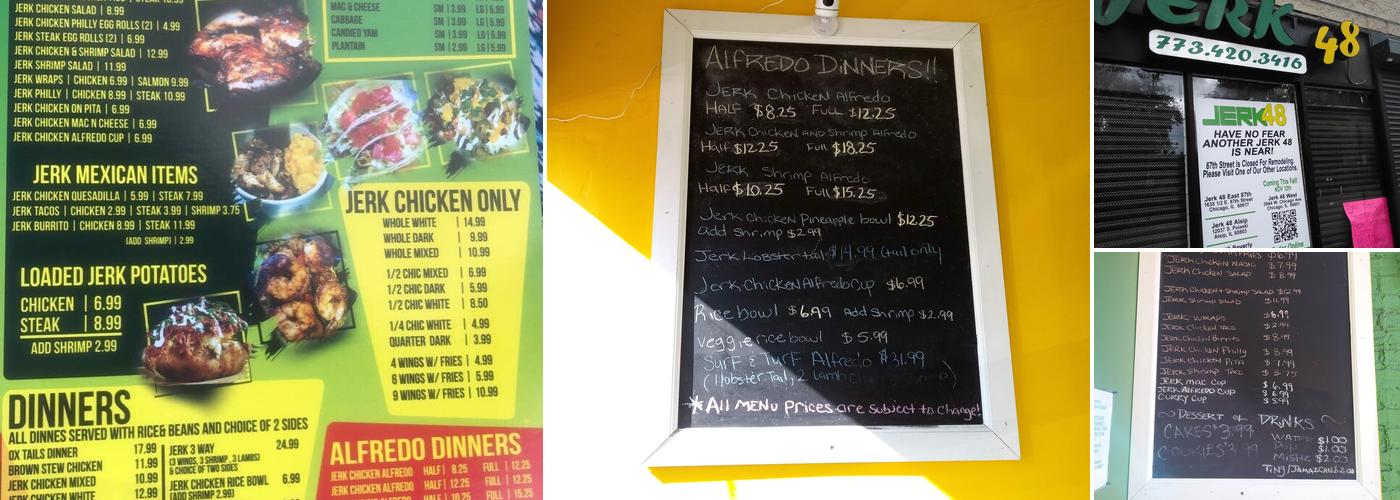 JERK CHICKEN SALAD | 8.99
JERK CHICKEN PHILLY EGG ROLLS (2) | 4.99
JERK STEAK EGG ROLLS (2) | 6.99
JERK CHICKEN & SHRIMP SALAD | 12.99
JERK SHRIMP SALAD | 11.99
JERK WRAPS | CHICKEN 6.99 | SALMON 9.99
JERK PHILLY | CHICKEN 8.99 | STEAK 10.99
JERK CHICKEN ON PITA | 6.99
JERK CHICKEN MAC N CHEESE | 6.99
JERK CHICKEN ALFREDO CUP | 6.99
MAC & CHEESE SM | 3.99 LG | 5.99
CABBAGE SM | 3.99 LG | 5.99
CANDIED YAM SM | 3.99 LG | 5.99
PLANTAIN SM | 2.99 LG | 5.99
JERK MEXICAN ITEMS
JERK CHICKEN QUESADILLA | 5.99 | STEAK 7.99
JERK TACOS | CHICKEN 2.99 | STEAK 3.99 | SHRIMP 3.75
JERK BURRITO | CHICKEN 8.99 | STEAK 11.99
(ADD SHRIMP) | 2.99
LOADED JERK POTATOES
CHICKEN | 6.99
STEAK | 8.99
ADD SHRIMP 2.99
JERK CHICKEN ONLY
WHOLE WHITE | 14.99
WHOLE DARK | 9.99
WHOLE MIXED | 10.99
1/2 CHIC MIXED | 6.99
1/2 CHIC DARK | 5.99
1/2 CHIC WHITE | 8.50
1/4 CHIC WHITE | 4.99
QUARTER DARK | 3.99
4 WINGS W/ FRIES | 4.99
6 WINGS W/ FRIES | 5.99
9 WINGS W/ FRIES | 10.99
DINNERS
ALL DINNES SERVED WITH RICE& BEANS AND CHOICE OF 2 SIDES
OX TAILS DINNER 17.99
BROWN STEW CHICKEN 11.99
JERK CHICKEN MIXED 10.99
JERK CHICKEN WHITE 12.99
JERK 3 WAY 24.99
(3 WINGS, 3 SHRIMP, 3 LAMBS)
& CHOICE OF TWO SIDES
JERK CHICKEN RICE BOWL 6.99
(ADD SHRIMP 2.99)
ALFREDO DINNERS
JERK CHICKEN ALFREDO HALF | 8.25 FULL | 12.25
JERK CHICKEN ALFREDO HALF | 12.25 FULL | 12.25
HALF | 10.25 FULL | 15.25
ALFREDO DINNERS!!
JERK CHICKEN Alfredo
HALF $8.25 FULL $12.25
JERK Chicken AND Shrimp Alfredo
Half $12.25 Full $18.25
JERK Shrimp Alfredo
Half $10.25 Full $15.25
Jerk Chicken Pineapple bowl $12.25
add Shrimp $2.99
Jerk Lobster tail $14.99 (tail only)
Jerk Chicken Alfredo Cup $6.99
Rice bowl $6.99 Add Shrimp $2.99
veggie rice bowl $5.99
SurF & TurF Alfredo $31.99
(1 lobster Tail, 2 lamb
*All MENU Prices are subject to Change!
JERK 48
773.420.3416
JERK48
HAVE NO FEAR
ANOTHER JERK 48
IS NEAR!
67th Street Is Closed For Remodeling.
Please Visit One of Our Other Locations.
Coming This Fall!
NOV 12th
Jerk 48 East 87th
1635 1/2 E. 87th Street
Chicago, IL. 60617
Jerk 48 West
3944 W. Chicago Ave
Jerk 48 Alsip
12037 S. Pulaski
Alsip, IL 60803
Jerk 48 Beverly
Order Online
JERK CHICKEN NACHO $7.99
JERK CHICKEN SALAD $8.99
JERK CHICKEN & SHRIMP SALAD $12.99
JERK SHRIMP SALAD $11.99
JERK WRAPS $6.99
JERK Chicken TACO $2.99
JERK Chicken Burrito $8.99
JERK Chicken Philly $8.99
JERK Chicken PITA $7.99
JERK Shrimp Taco $3.75
JERK MAC CUP $6.99
JERK ALFREDO CUP $6.99
CURRY CUP $5.99
~ DESSERT & DRINKS ~
CAKES $3.99
COOKIES $3.99
WATER $1.00
POP $1.00
Mistic $2.00
Ting/JAMAICAN $2.00